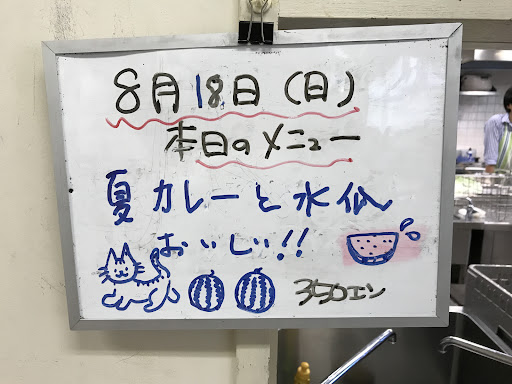 8月18日(日)
本日のメニュー
夏カレーと水瓜
おいしい!!
350エン